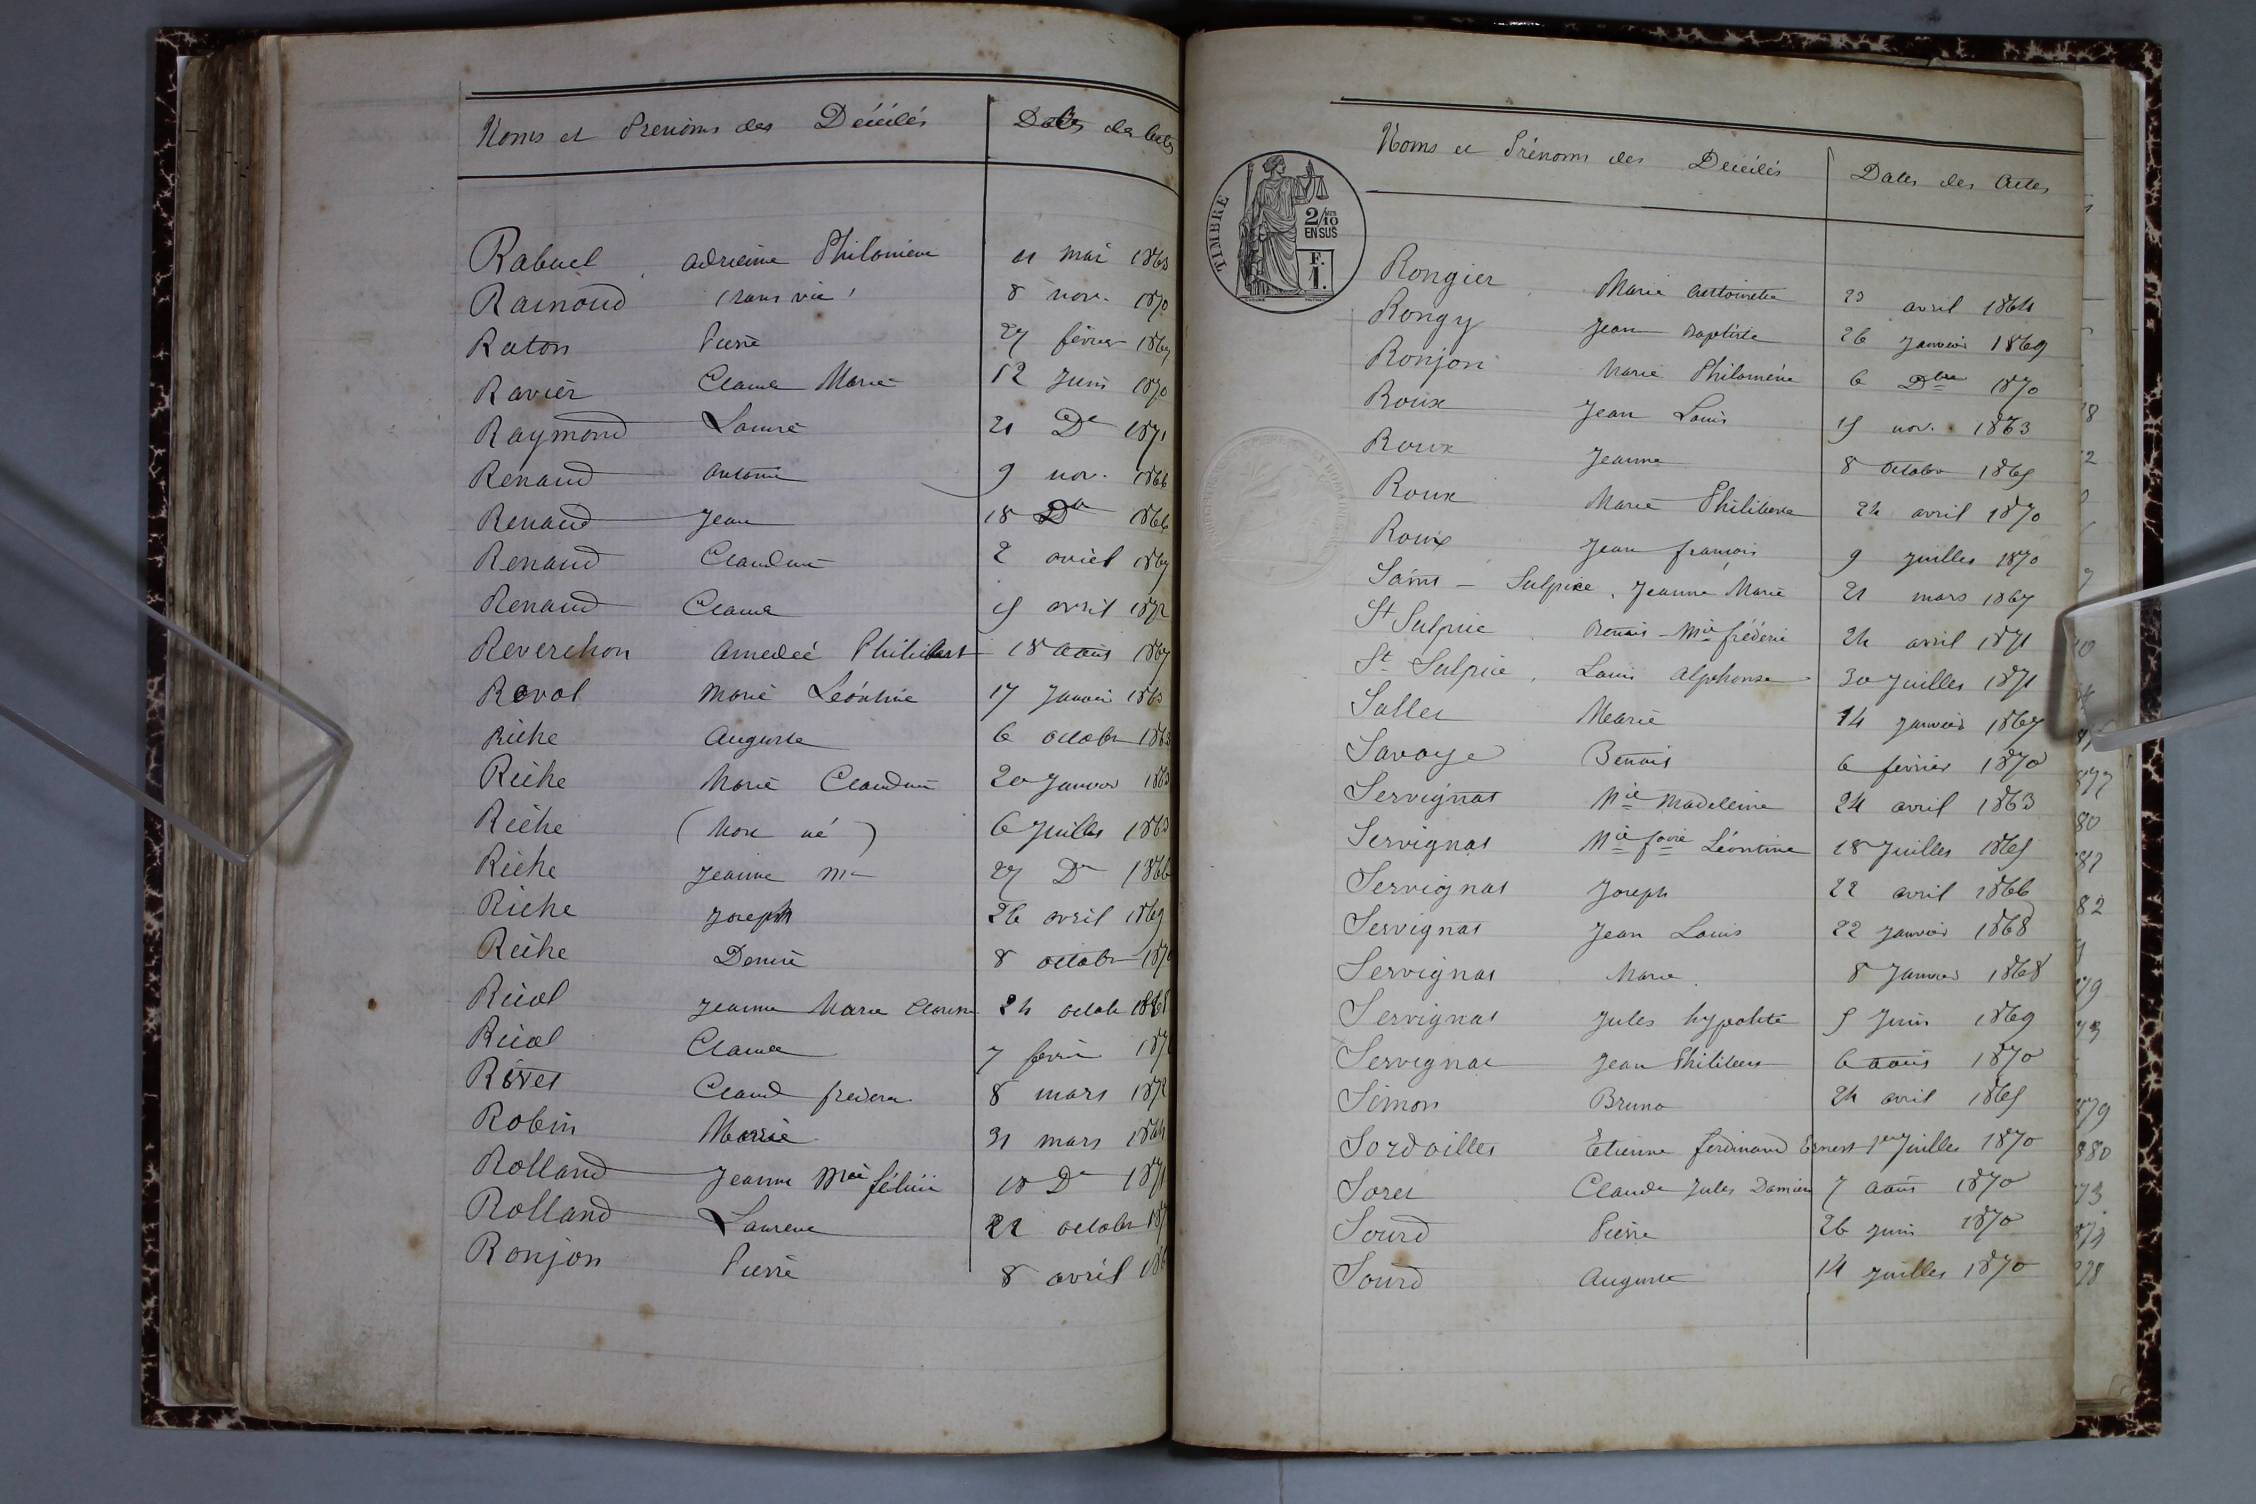 Noms et Prénoms des Décédés Dates des Actes
Rabuel Adrienne Philomène 11 mai 1863
Rainoud (sans vie) 8 nov. 1870
Raton Pierre 27 février 1867
Ravier Claude Marie 12 Juin 1870
Raymond Louise 21 Dre 1871
Renaud Antoine 9 nov. 1866
Renaud Jean 18 Dre 1866
Renaud Claudine 2 avril 1867
Renaud Claude 15 avril 1872
Reverchon Amédée Philibert 18 août 1867
Revol Marie Léontine 17 Janvier 1863
Riche Auguste 6 octobre 1863
Riche Marie Claudine 20 Janvier 1863
Riche (Mort né) 6 Juillet 1863
Riche Jeanne Mie 27 Dre 1866
Riche Joseph 26 avril 1869
Riche Denise 8 octobre
Ricol Jeanne Marie 24 octobre 1868
Ricol Claude 7 février
Rivet Claude frédéric 8 mars 1872
Robin Marie 31 mars 1864
Rolland Jeanne Mie félicie 18 Dre 1871
Rolland Laurent 22 octobre
Ronjon Pierre 8 avril
Noms et Prénoms des Décédés Dates des Actes
TIMBRE
2/10 EN SUS
F. 1.
Rongier Marie Antoinette 23 avril 1864
Rongy Jean Baptiste 26 Janvier 1869
Ronjon Marie Philomène 6 Dbre 1870
Roux Jean Louis 15 nov. 1863
Roux Jeanne 8 octobre 1865
Roux Marie Philiberte 24 avril 1870
Roux Jean françois 9 Juillet 1870
Saint-Sulpice, Jeanne Marie 21 mars 1867
St Sulpice Benoit Mie frédéric 24 avril 1871
St Sulpice, Louis Alphonse 30 Juillet 1871
Sallet Marie 14 Janvier 1867
Savoye Benoit 6 février 1870
Servignat Mie Madeleine 24 avril 1863
Servignat Mie Léontine 18 Juillet 1865
Servignat Joseph 22 avril 1866
Servignat Jean Louis 22 Janvier 1868
Servignat Marie 8 Janvier 1868
Servignat Jules hypolite 5 Juin 1869
Servignat Jean Philibert 6 août 1870
Simon Bruno 24 avril 1865
Sordoillet Etienne ferdinand Ernest 1er Juillet 1870
Soret Claude Jules Damien 7 août 1870
Sourd Pierre 26 Juin 1870
Sourd Auguste 14 Juillet 1870